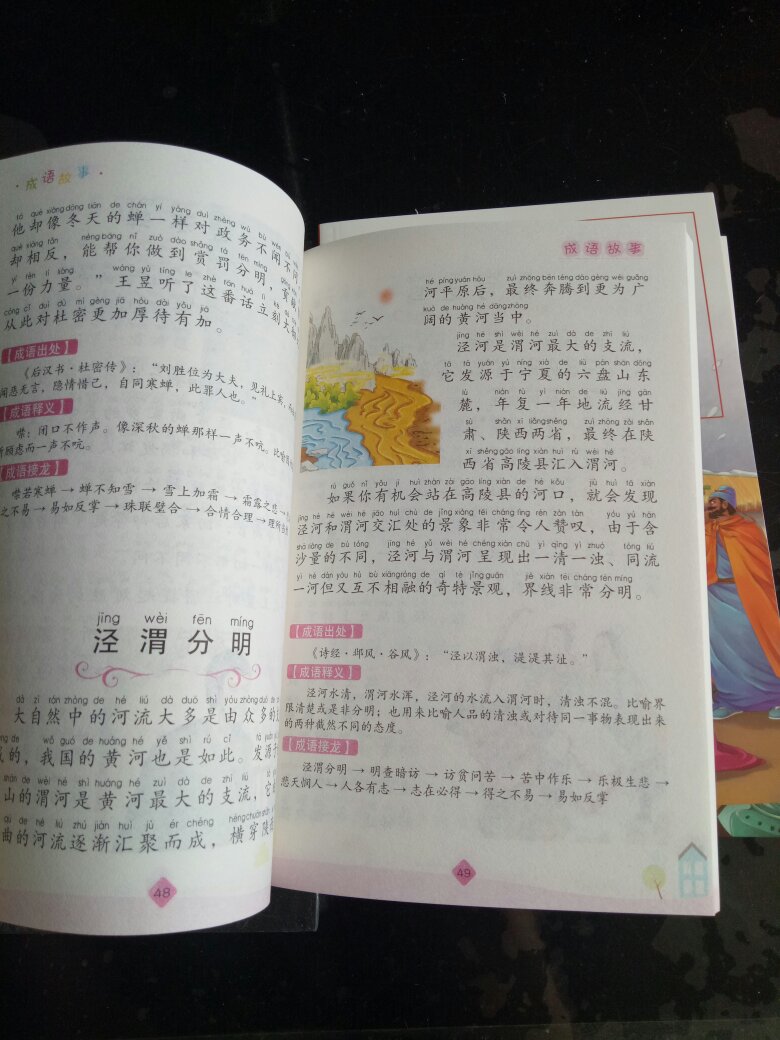 成语故事
tā què xiàng dōng tiān de chán yí yàng duì zhèng wù bù wén
他却像冬天的蝉一样对政务不闻不问
què xiāng fǎn néng bāng nǐ zuò dào shǎng fá fēn míng
却相反，能帮你做到赏罚分明，
yí fèn lì liàng wáng yù tīng le zhè fān huà lì kè
一份力量。”王昱听了这番话立刻
cóng cǐ duì dù mì gèng jiā hòu dài yǒu jiā
从此对杜密更加厚待有加。
【成语出处】
《后汉书·杜密传》：“刘胜位为大夫，见礼上宾，
闻恶无言，隐情惜己，自同寒蝉，此罪人也。”
【成语释义】
噤：闭口不作声。像深秋的蝉那样一声不吭。比喻
所顾虑而一声不吭。
【成语接龙】
噤若寒蝉→蝉不知雪→雪上加霜→霜露之悲→
之不易→易如反掌→珠联璧合→合情合理→理所当
jīng wèi fēn míng
泾渭分明
dà zì rán zhōng de hé liú dà duō shì yóu zhòng duō de
大自然中的河流大多是由众多的
de wǒ guó de huáng hé yě shì rú cǐ fā yuán
成的，我国的黄河也是如此。发源于
shān de wèi hé shì huáng hé zuì dà de zhī liú
山的渭河是黄河最大的支流，它
qū de hé liú zhú jiàn huì jù ér chéng héng chuān shǎn
曲的河流逐渐汇聚而成，横穿陕
48
成语故事
hé píng yuán hòu zuì zhōng bēn téng dào gèng wéi guǎng
河平原后，最终奔腾到更为广
kuò de huáng hé dāng zhōng
阔的黄河当中。
jīng hé shì wèi hé zuì dà de zhī liú
泾河是渭河最大的支流，
tā fā yuán yú níng xià de liù pán shān dōng
它发源于宁夏的六盘山东
lù nián fù yì nián de liú jīng gān
麓，年复一年地流经甘
sù shǎn xī liǎng shěng zuì zhōng zài shǎn
肃、陕西两省，最终在陕
xī shěng gāo líng xiàn huì rù wèi hé
西省高陵县汇入渭河。
rú guǒ nǐ yǒu jī huì zhàn zài gāo líng xiàn de hé kǒu jiù huì fā xiàn
如果你有机会站在高陵县的河口，就会发现
jīng hé hé wèi hé jiāo huì chù de jǐng xiàng fēi cháng lìng rén zàn tàn yóu yú hán
泾河和渭河交汇处的景象非常令人赞叹，由于含
shā liàng de bù tóng jīng hé yǔ wèi hé chéng xiàn chū yì qīng yì zhuó tóng liú
沙量的不同，泾河与渭河呈现出一清一浊、同流
yì hé dàn yòu hù bù xiāng róng de qí tè jǐng guān jiè xiàn fēi cháng fēn míng
一河但又互不相融的奇特景观，界线非常分明。
【成语出处】
《诗经·邶风·谷风》：“泾以渭浊，湜湜其沚。”
【成语释义】
泾河水清，渭河水浑，泾河的水流入渭河时，清浊不混。比喻界
限清楚或是非分明；也用来比喻人品的清浊或对待同一事物表现出来
的两种截然不同的态度。
【成语接龙】
泾渭分明→明查暗访→访贫问苦→苦中作乐→乐极生悲→
悲天悯人→人各有志→志在必得→得之不易→易如反掌
49